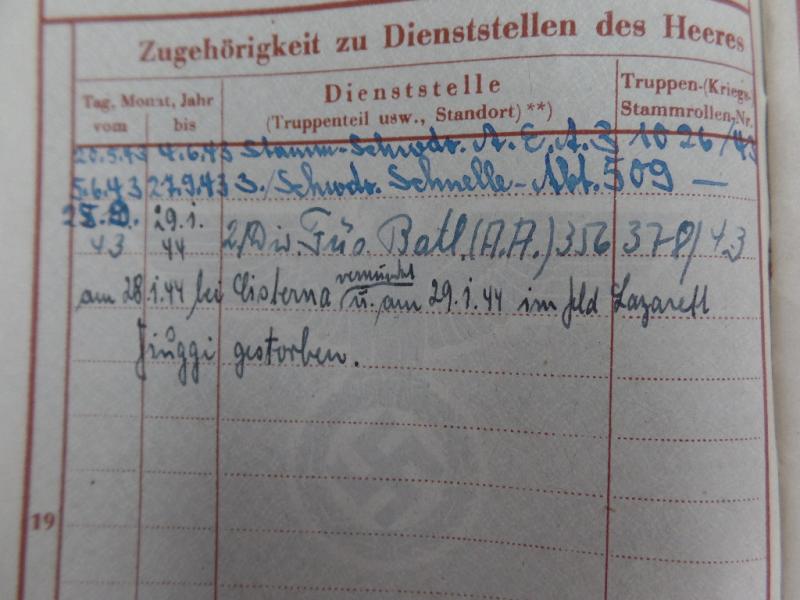 Zugehörigkeit zu Dienststellen des Heeres
Tag, Monat, Jahr
vom bis
Dienststelle
(Truppenteil usw., Standort) **)
Truppen-(Kriegs-
Stammrollen-Nr.
20.5.43 4.6.43 Stamm-Schwdr. A. E. A. 3 1026/43
5.6.43 27.9.43 3./Schwdr. Schnelle-Abt. 509 —
28.9. 29.1.
43 44 2/Div. Füs. Batl. (A.A.) 356 378/43
verwundet
am 28.1.44 bei Cisterna u. am 29.1.44 im feld Lazarett
gestorben.
19